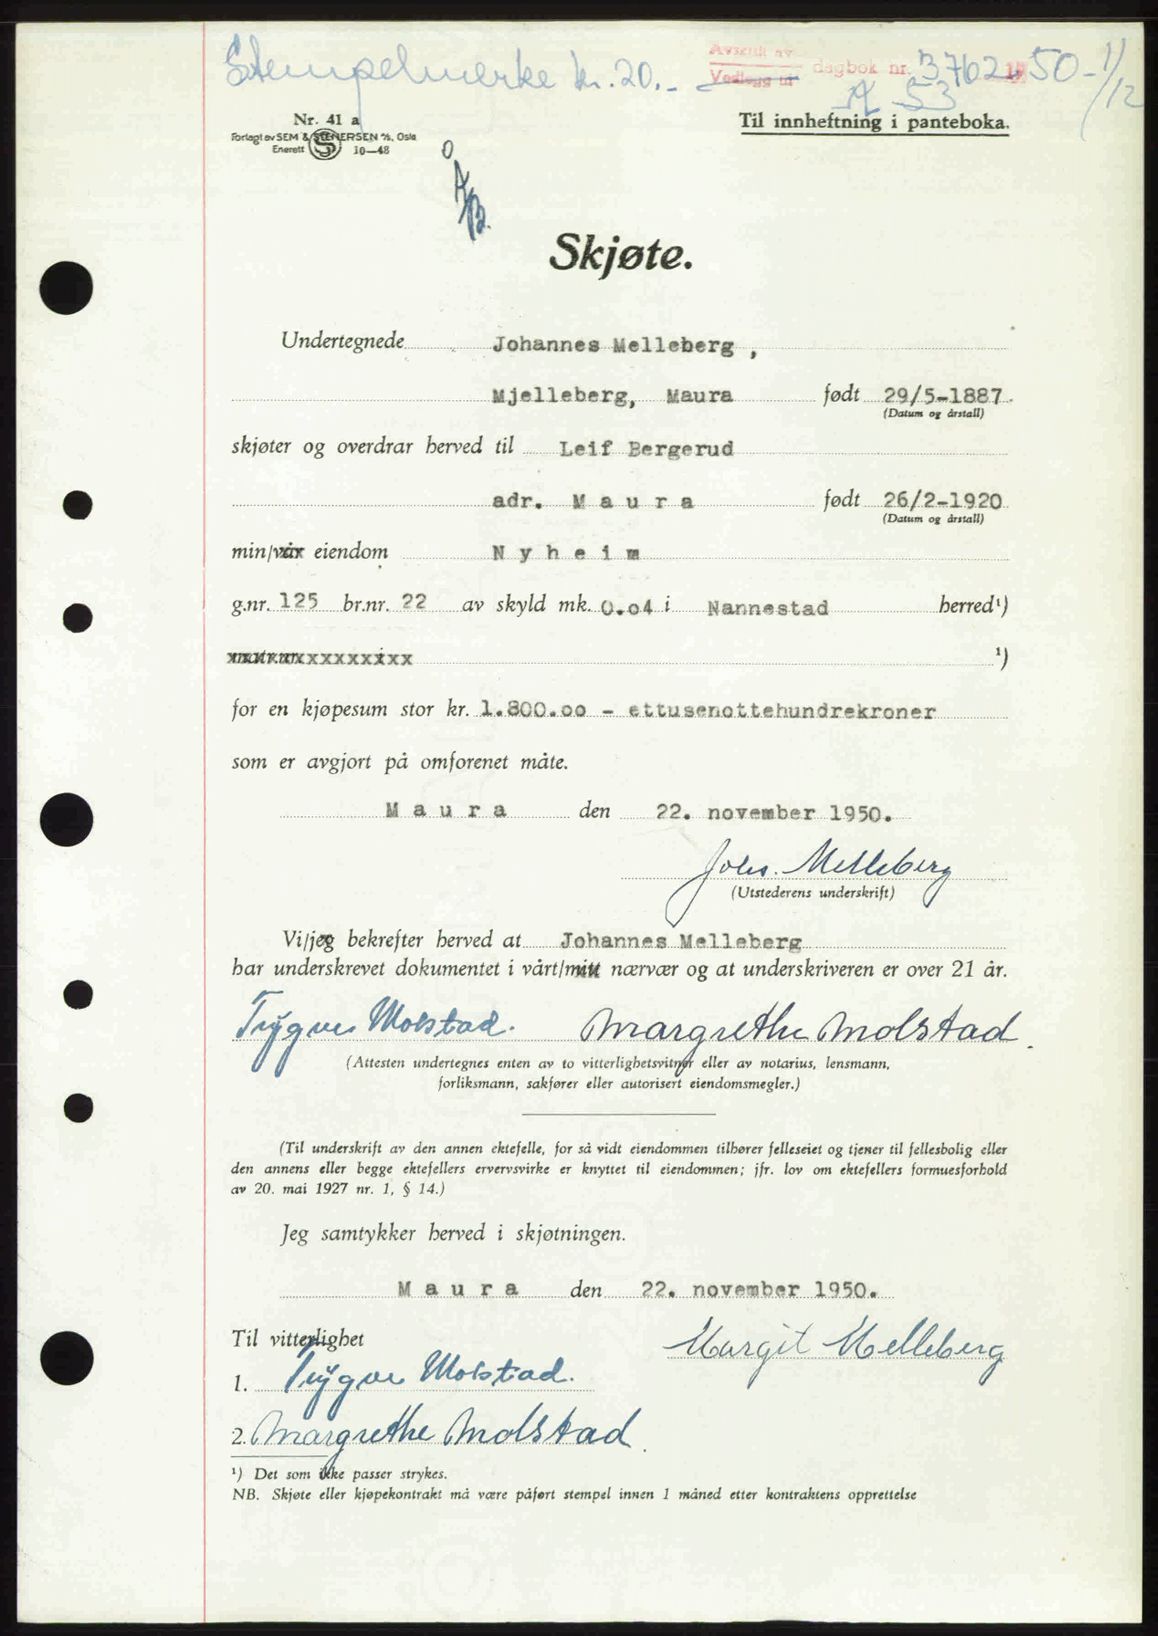 Stempelmerke kr. 20.-
Avskrift av
Vedlegg til dagbok nr. 3762 1950 - 1/12
A 53
Nr. 41 a
Forlagt av SEM & STENERSEN A/S, Oslo
Enerett S 10—48
Til innheftning i panteboka.
O
A/B.
Skjøte.
Undertegnede Johannes Melleberg ,
Mjelleberg, Maura født 29/5-1887.
(Datum og årstall)
skjøter og overdrar herved til Leif Bergerud
adr. M a u r a født 26/2-1920
(Datum og årstall)
min/vår eiendom N y h e i m
g.nr. 125 br.nr. 22 av skyld mk. 0.o4 i Nannestad herred¹)
¹)
for en kjøpesum stor kr. 1.800.oo - ettusenottehundrekroner
som er avgjort på omforenet måte.
M a u r a den 22. november 1950.
Johs. Melleberg
(Utstederens underskrift)
Vi/jeg bekrefter herved at Johannes Melleberg
har underskrevet dokumentet i vårt/mitt nærvær og at underskriveren er over 21 år.
Trygve Molstad. Margrethe Molstad.
(Attesten undertegnes enten av to vitterlighetsvitner eller av notarius, lensmann,
forliksmann, sakfører eller autorisert eiendomsmegler.)
(Til underskrift av den annen ektefelle, for så vidt eiendommen tilhører felleseiet og tjener til fellesbolig eller
den annens eller begge ektefellers ervervsvirke er knyttet til eiendommen; jfr. lov om ektefellers formuesforhold
av 20. mai 1927 nr. 1, § 14.)
Jeg samtykker herved i skjøtningen.
M a u r a den 22. november 1950.
Til vitterlighet Margit Melleberg
1. Trygve Molstad.
2. Margrethe Molstad.
¹) Det som ikke passer strykes.
NB. Skjøte eller kjøpekontrakt må være påført stempel innen 1 måned etter kontraktens opprettelse